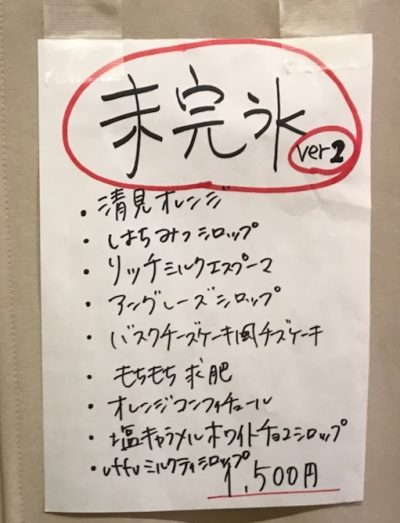 未完氷
ver2
・清見オレンジ
・はちみつシロップ
・リッチミルクエスプーマ
・アングレーズシロップ
・バスクチーズケーキ風チーズケーキ
・もちもち求肥
・オレンジコンフィチュール
・塩キャラメルホワイトチョコシロップ
・uffuミルクティシロップ
1,500円